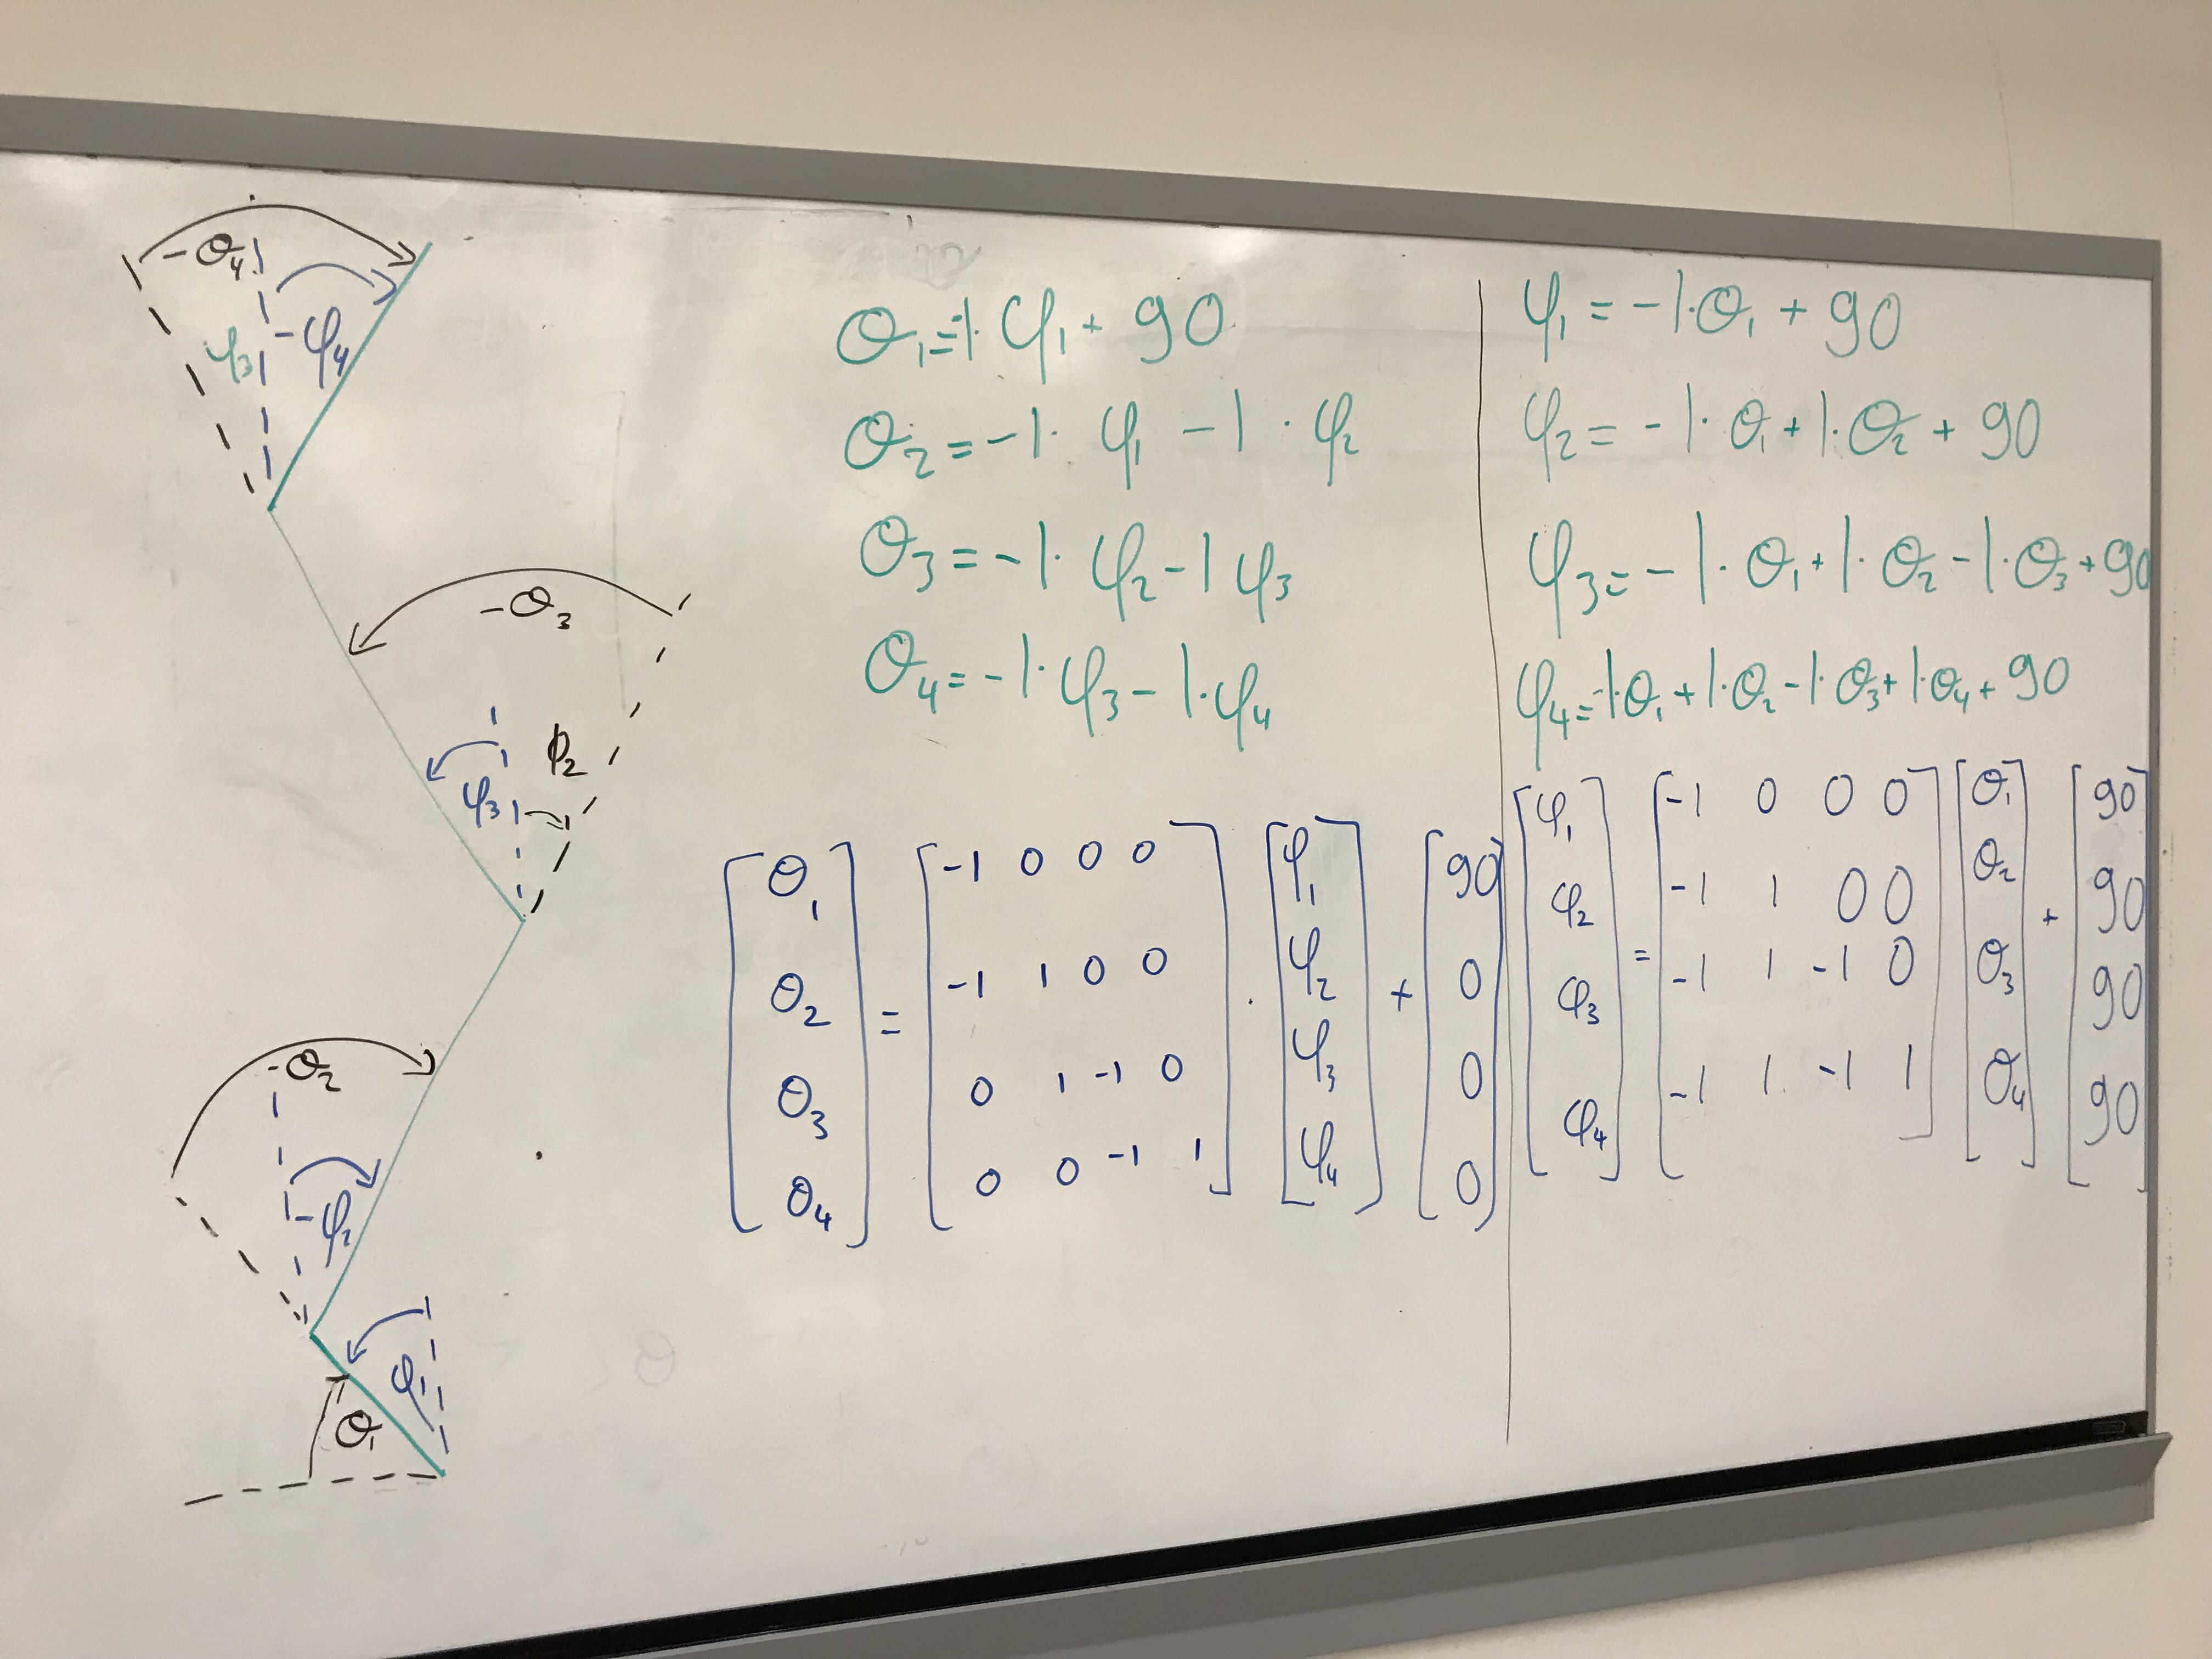 -θ₄
φ₃ -φ₄
-θ₃
ϕ₂
φ₃
-θ₂
-φ₂
φ₁
θ₁
θ₁=-1·φ₁+ 90
θ₂=-1· φ₁ -1 · φ₂
θ₃=-1· φ₂-1 φ₃
θ₄=-1·φ₃-1·φ₄
[θ₁ θ₂ θ₃ θ₄] = [-1 0 0 0
-1 1 0 0
0 1 -1 0
0 0 -1 1] · [φ₁ φ₂ φ₃ φ₄] + [90 0 0 0]
φ₁=-1·θ₁+90
φ₂=-1·θ₁+1·θ₂+90
φ₃=-1·θ₁+1·θ₂-1·θ₃+90
φ₄=-1·θ₁+1·θ₂-1·θ₃+1·θ₄+90
[φ₁ φ₂ φ₃ φ₄] = [-1 0 0 0
-1 1 0 0
-1 1 -1 0
-1 1 -1 1] [θ₁ θ₂ θ₃ θ₄] + [90 90 90 90]